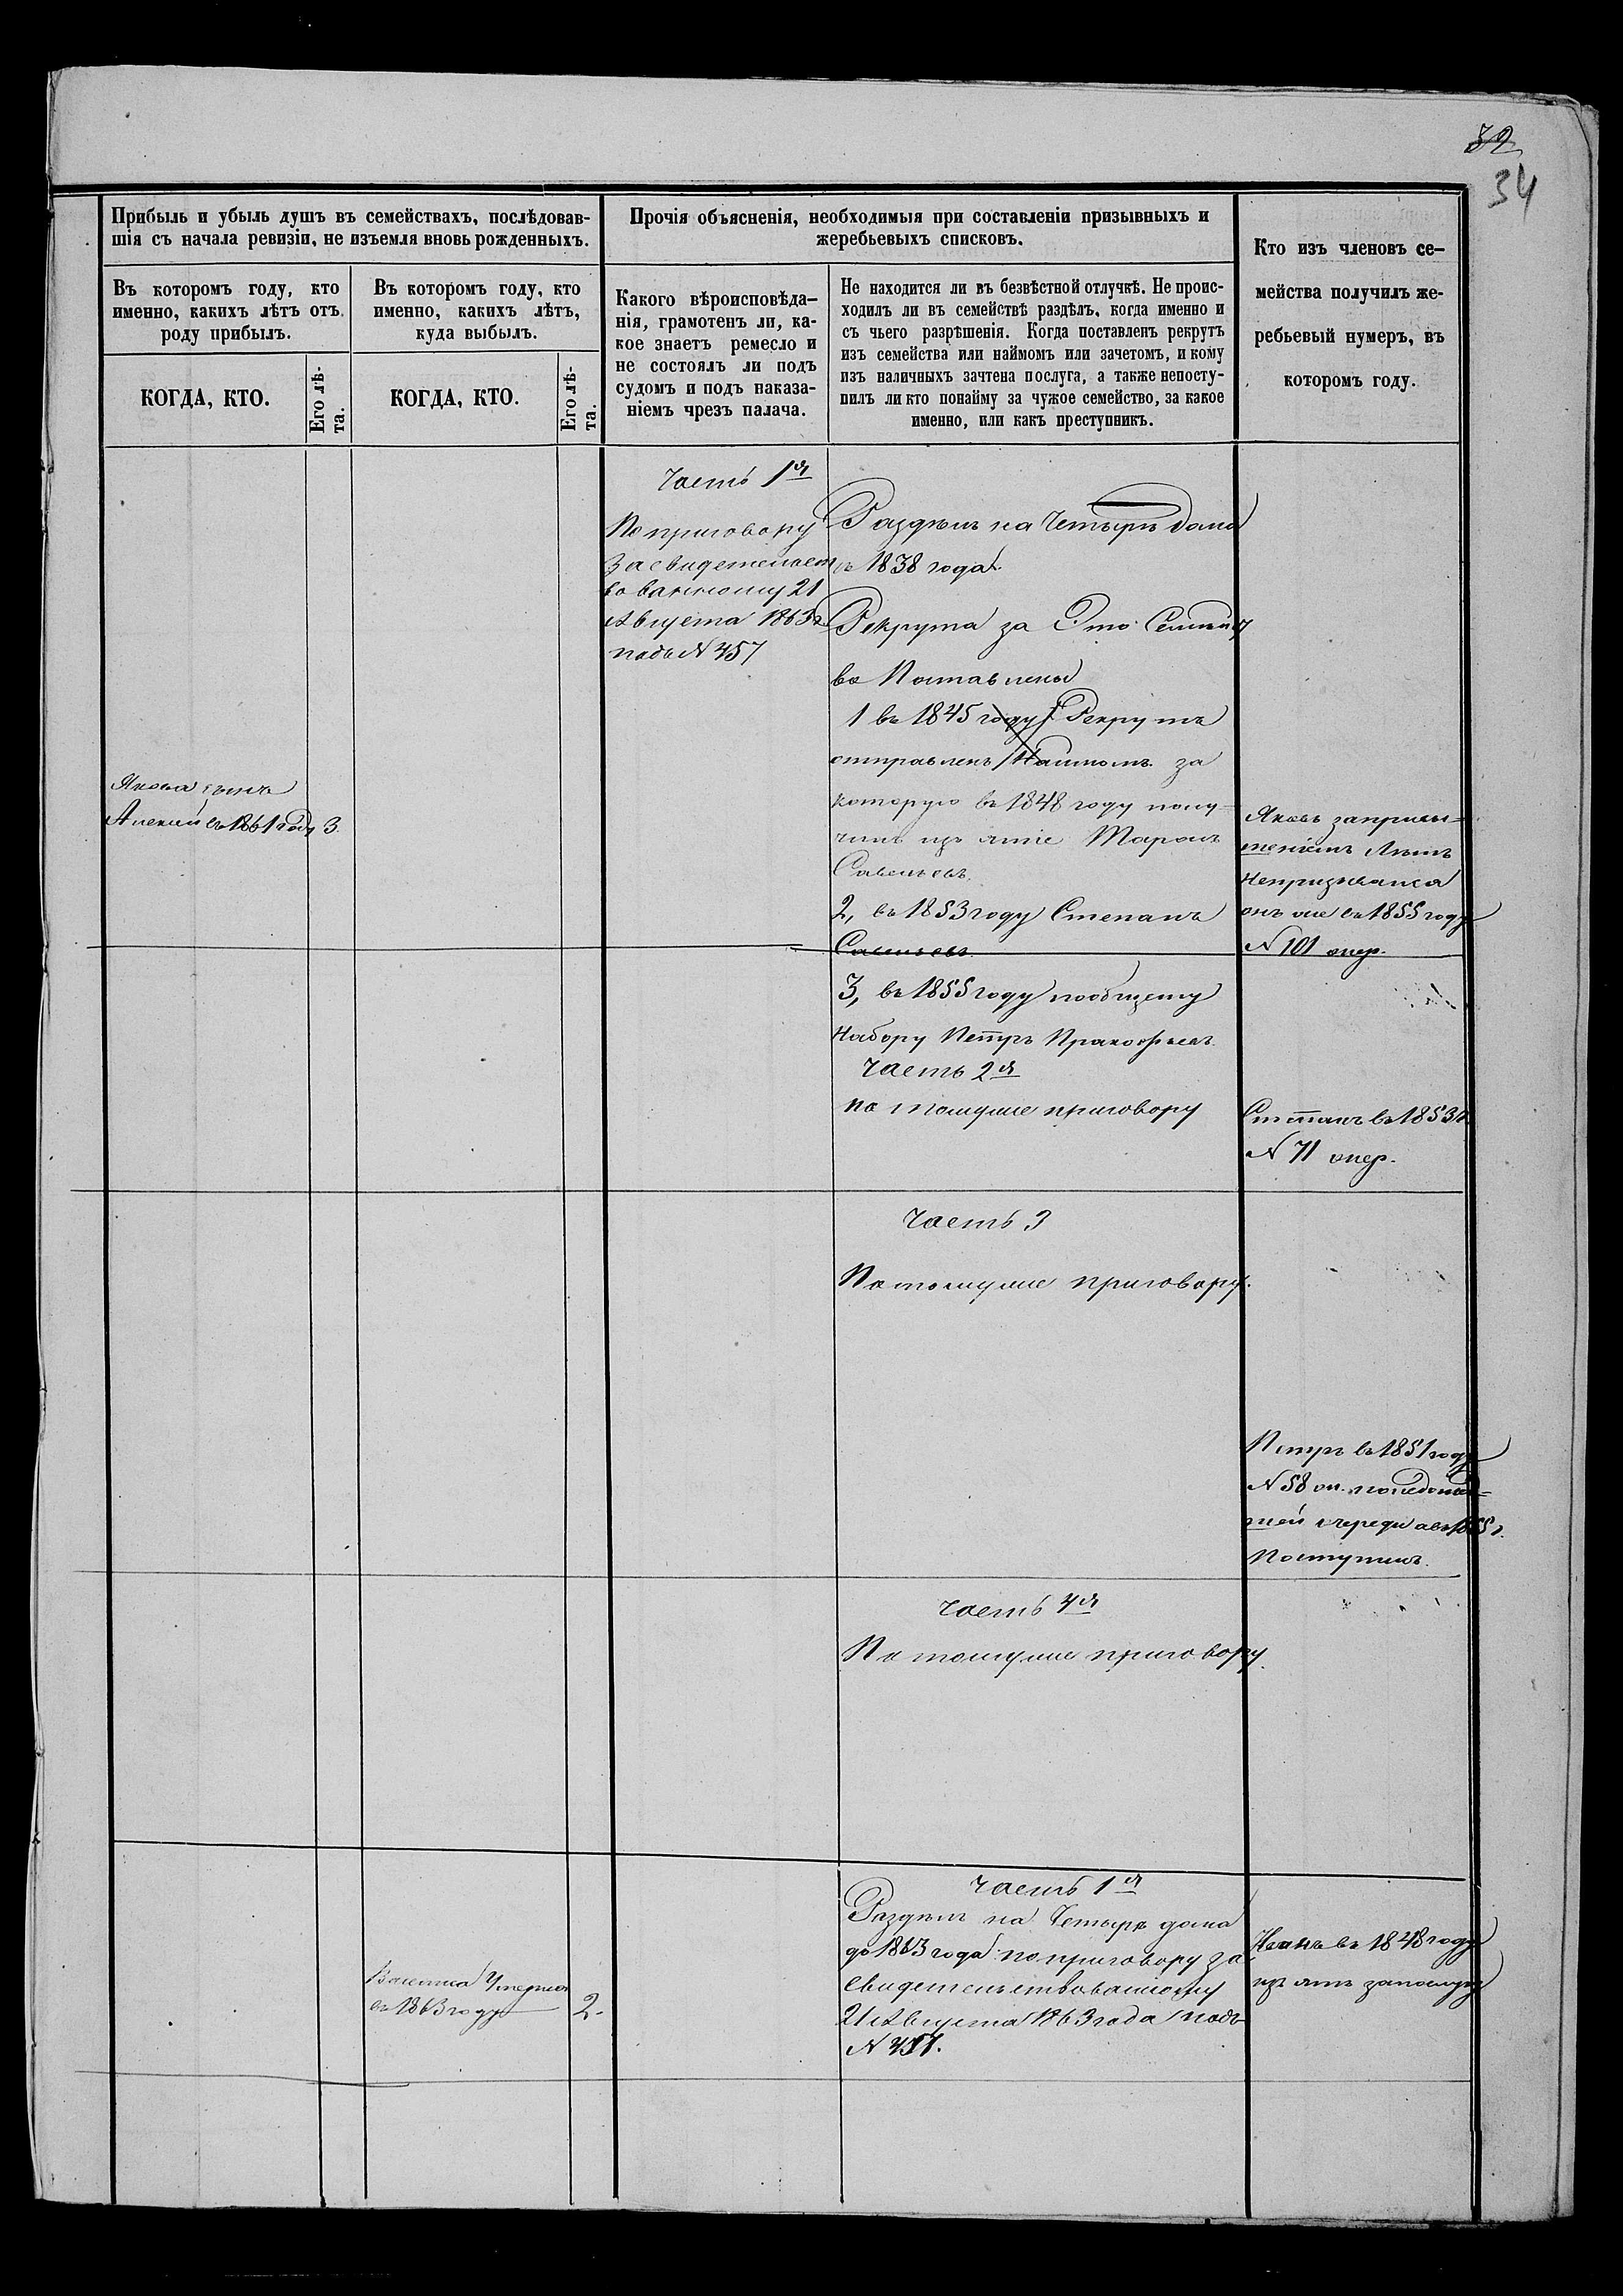 32
34
Прибыль и убыль душъ въ семействахъ, послѣдовав-
шія съ начала ревизіи, не изъемля вновь рожденныхъ.
Прочія объясненія, необходимыя при составленіи призывныхъ и
жеребьевыхъ списковъ.
Кто изъ членовъ се-
мейства получилъ же-
ребьевый нумеръ, въ
которомъ году.
Въ которомъ году, кто
именно, какихъ лѣтъ отъ
роду прибылъ.
Въ которомъ году, кто
именно, какихъ лѣтъ,
куда выбылъ.
Какого вѣроисповѣда-
нія, грамотенъ ли, ка-
кое знаетъ ремесло и
не состоялъ ли подъ
судомъ и подъ наказа-
ніемъ чрезъ палача.
Не находится ли въ безвѣстной отлучкѣ. Не проис-
ходилъ ли въ семействѣ раздѣлъ, когда именно и
съ чьего разрѣшенія. Когда поставленъ рекрутъ
изъ семейства или наймомъ или зачетомъ, и кому
изъ наличныхъ зачтена послуга, а также непосту-
пилъ ли кто понайму за чужое семейство, за какое
именно, или какъ преступникъ.
КОГДА, КТО.
Его лѣ-
та.
КОГДА, КТО.
Его лѣ-
та.
Часть 1я
По приговору
Засвидетельст
вованному 21
Августа 1863 г.
подъ N 457
Раздѣлъ на Четырѣ дома
1838 года.
Рекрута за Это Семьй
во Поставлены
1 въ 1845 году Рекрутъ
отправленъ Наймомъ за
которую въ 1848 году полу-
чилъ изъятіе
Савельевъ.
2, въ 1853 году Степанъ
Савельевъ.
3, въ 1855 году пообщему
Набору Петръ Пракофьевъ.
Часть 2я
по томуже приговору
Якова сынъ
Алексий въ 1861 году 3.
Яковъ
Лѣтъ
Непризывался
онъ же въ 1855 году
N 101 очер.
Степанъ въ 1853 г.
N 71 очер.
Часть 3
По томуже приговору.
Петръ въ 1851 году
N 58
очереди
Поступилъ.
Часть 4я
По томуже приговору.
Часть 1я
Раздѣлъ на Четырѣ дома
до 1863 года по приговору за
свидетельствованному
21 Августа 1863 года подъ
N 457.
Умерла
въ 1863 году 2.
Иванъ въ 1848 году
изъятъ запослугу